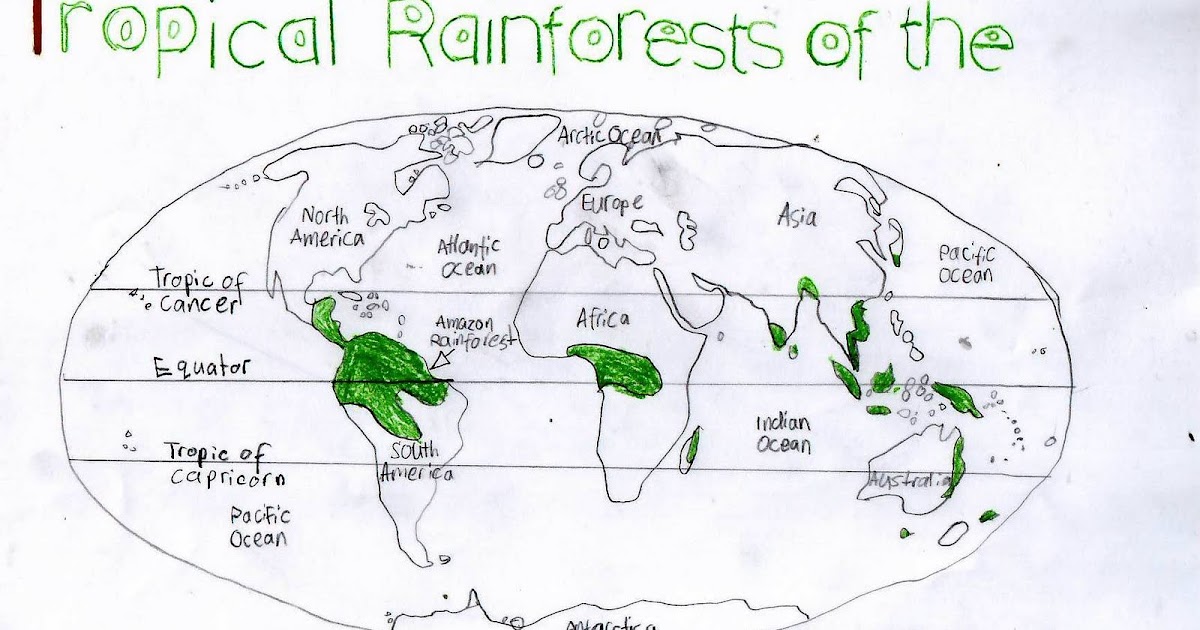 Tropical Rainforests of the
Arctic Ocean
North
America
Europe
Asia
Atlantic
Ocean
Pacific
Ocean
Tropic of
Cancer
Amazon
Rainforest
Africa
Equator
Indian
Ocean
Tropic of
Capricorn
South
America
Australia
Pacific
Ocean
Antarctica